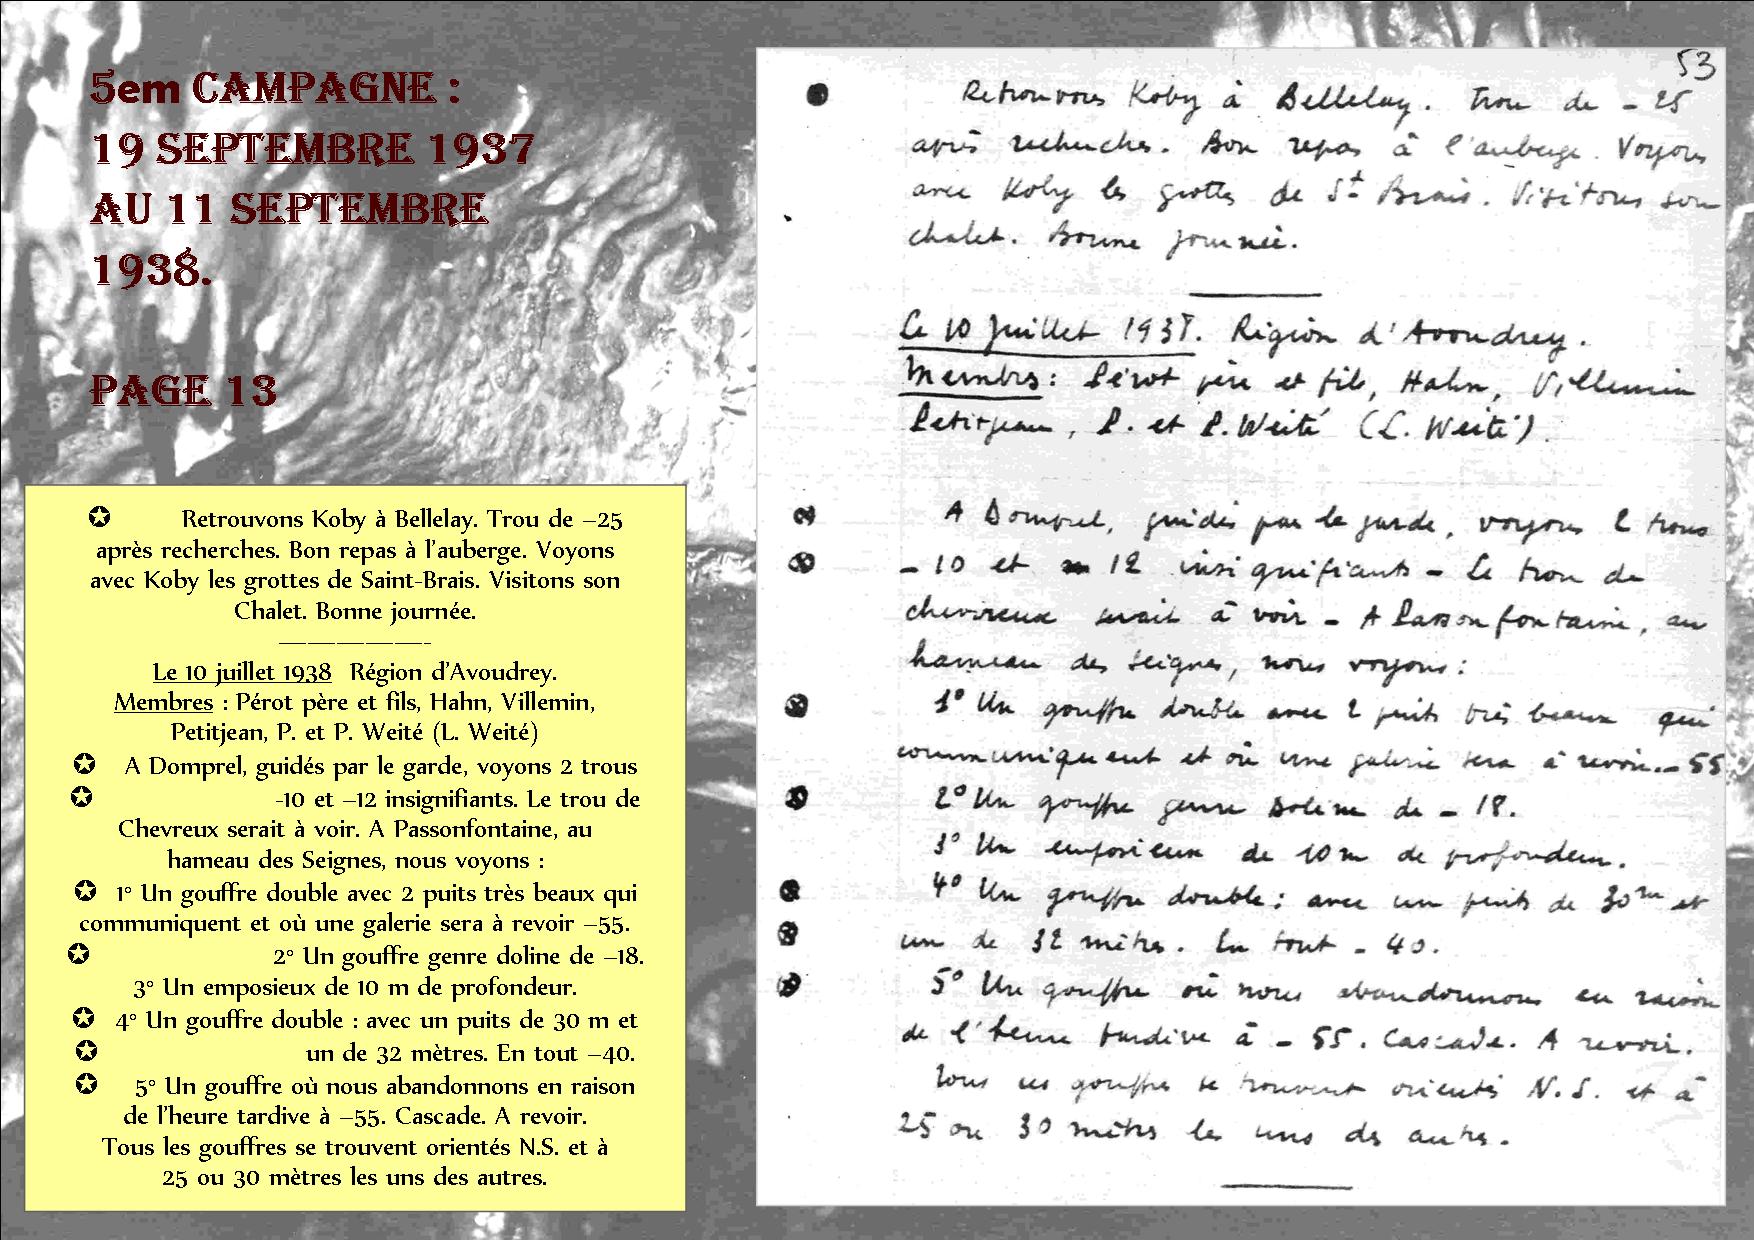 5em CAMPAGNE :
19 SEPTEMBRE 1937
AU 11 SEPTEMBRE
1938.
PAGE 13
✪ Retrouvons Koby à Bellelay. Trou de –25
après recherches. Bon repas à l'auberge. Voyons
avec Koby les grottes de Saint-Brais. Visitons son
Chalet. Bonne journée.
——————-
Le 10 juillet 1938 Région d'Avoudrey.
Membres : Pérot père et fils, Hahn, Villemin,
Petitjean, P. et P. Weité (L. Weité)
✪ A Domprel, guidés par le garde, voyons 2 trous
✪ -10 et –12 insignifiants. Le trou de
Chevreux serait à voir. A Passonfontaine, au
hameau des Seignes, nous voyons :
✪ 1° Un gouffre double avec 2 puits très beaux qui
communiquent et où une galerie sera à revoir –55.
✪ 2° Un gouffre genre doline de –18.
3° Un emposieux de 10 m de profondeur.
✪ 4° Un gouffre double : avec un puits de 30 m et
✪ un de 32 mètres. En tout –40.
✪ 5° Un gouffre où nous abandonnons en raison
de l'heure tardive à –55. Cascade. A revoir.
Tous les gouffres se trouvent orientés N.S. et à
25 ou 30 mètres les uns des autres.
53
Retrouvons Koby à Bellelay. Trou de – 25
après recherches. Bon repas à l'auberge. Voyons
avec Koby les grottes de St Brais. Visitons son
chalet. Bonne journée.
Le 10 Juillet 1938. Région d'Avoudrey.
Membres : Pérot père et fils, Hahn, Villemin
Petitjean, P. et P. Weité (L. Weité).
A Domprel, guidés par le garde, voyons 2 trous
– 10 et – 12 insignifiants – Le trou de
chevreux serait à voir – A Passonfontaine, au
hameau des Seignes, nous voyons :
1° Un gouffre double avec 2 puits très beaux qui
communiquent et où une galerie sera à revoir. – 55
2° Un gouffre genre doline de – 18.
3° Un emposieux de 10 m de profondeur.
4° Un gouffre double : avec un puits de 30 m et
un de 32 mètres. En tout – 40.
5° Un gouffre où nous abandonnons en raison
de l'heure tardive à – 55. Cascade. A revoir.
Tous ces gouffres se trouvent orientés N.S. et à
25 ou 30 mètres les uns des autres.